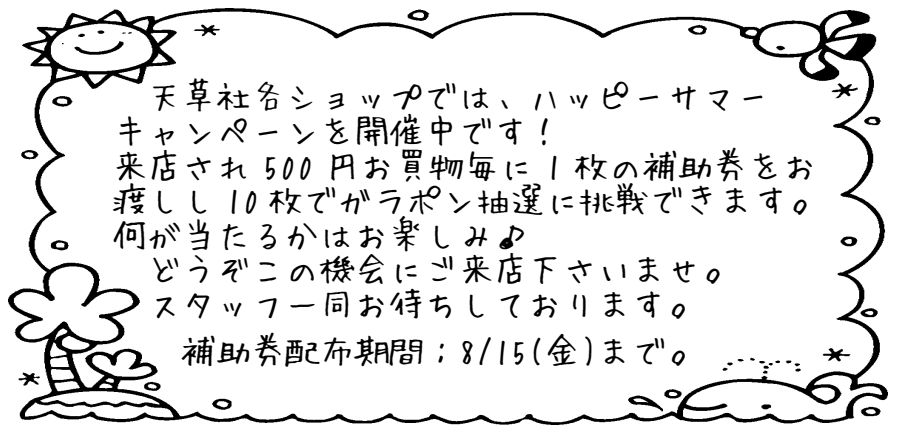 天草社各ショップでは、ハッピーサマー
キャンペーンを開催中です!
来店され500円お買物毎に1枚の補助券をお
渡しし10枚でガラポン抽選に挑戦できます。
何が当たるかはお楽しみ♪
どうぞこの機会にご来店下さいませ。
スタッフ一同お待ちしております。
補助券配布期間:8/15(金)まで。